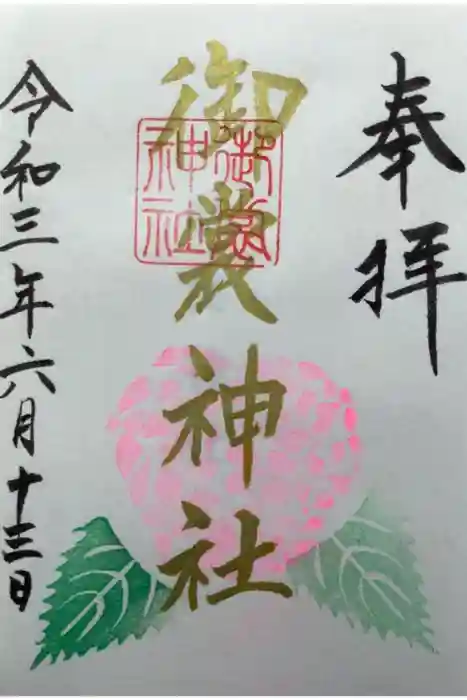 奉拝
御裳神社
御裳
神社
令和三年六月十三日